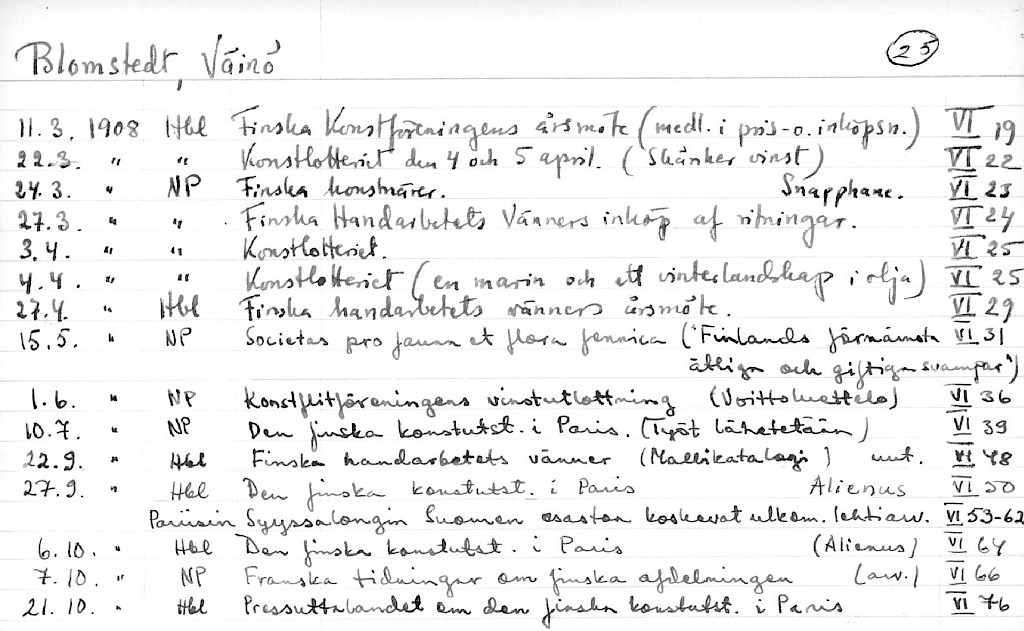 Blomstedt, Väinö 25
11.3. 1908 Hbl Finska Konstföreningens årsmöte (medl. i pris- o. inköpsn.) VI 19
22.3. " " Konstlotteriet den 4 och 5 april. (Skänker vinst) VI 22
24.3. " NP Finska konstnärer. Snapphane. VI 23
27.3 " " Finska Handarbetets Vänners inköp af ritningar. VI 24
3.4. " " Konstlotteriet. VI 25
4.4. " " Konstlotteriet (en marin och ett vinterlandskap i olja) VI 25
27.4. " Hbl Finska handarbetets vänners årsmöte. VI 29
15.5. " NP Societas pro fauna et flora fennica ("Finlands förnämsta VI 31
ätliga och giftiga svampar")
1.6. " NP Konstflitföreningens vinstutlottning (Voittoluettelo) VI 36
10.7. " NP Den finska konstutst. i Paris. (Työt lähetetään) VI 39
22.9. " Hbl Finska handarbetets vänner (Mallikatalogi) uut. VI 48
27.9. " Hbl Den finska konstutst. i Paris Alienus VI 50
Pariisin Syyssalongin Suomen osaston koskevat ulkom. lehtiarv. VI 53-62
6.10. " Hbl Den finska konstutst. i Paris (Alienus) VI 64
7.10. " NP Franska tidningar om finska afdelningen (arv.) VI 66
21.10. " Hbl Pressuttalandet om den finska konstutst. i Paris VI 76